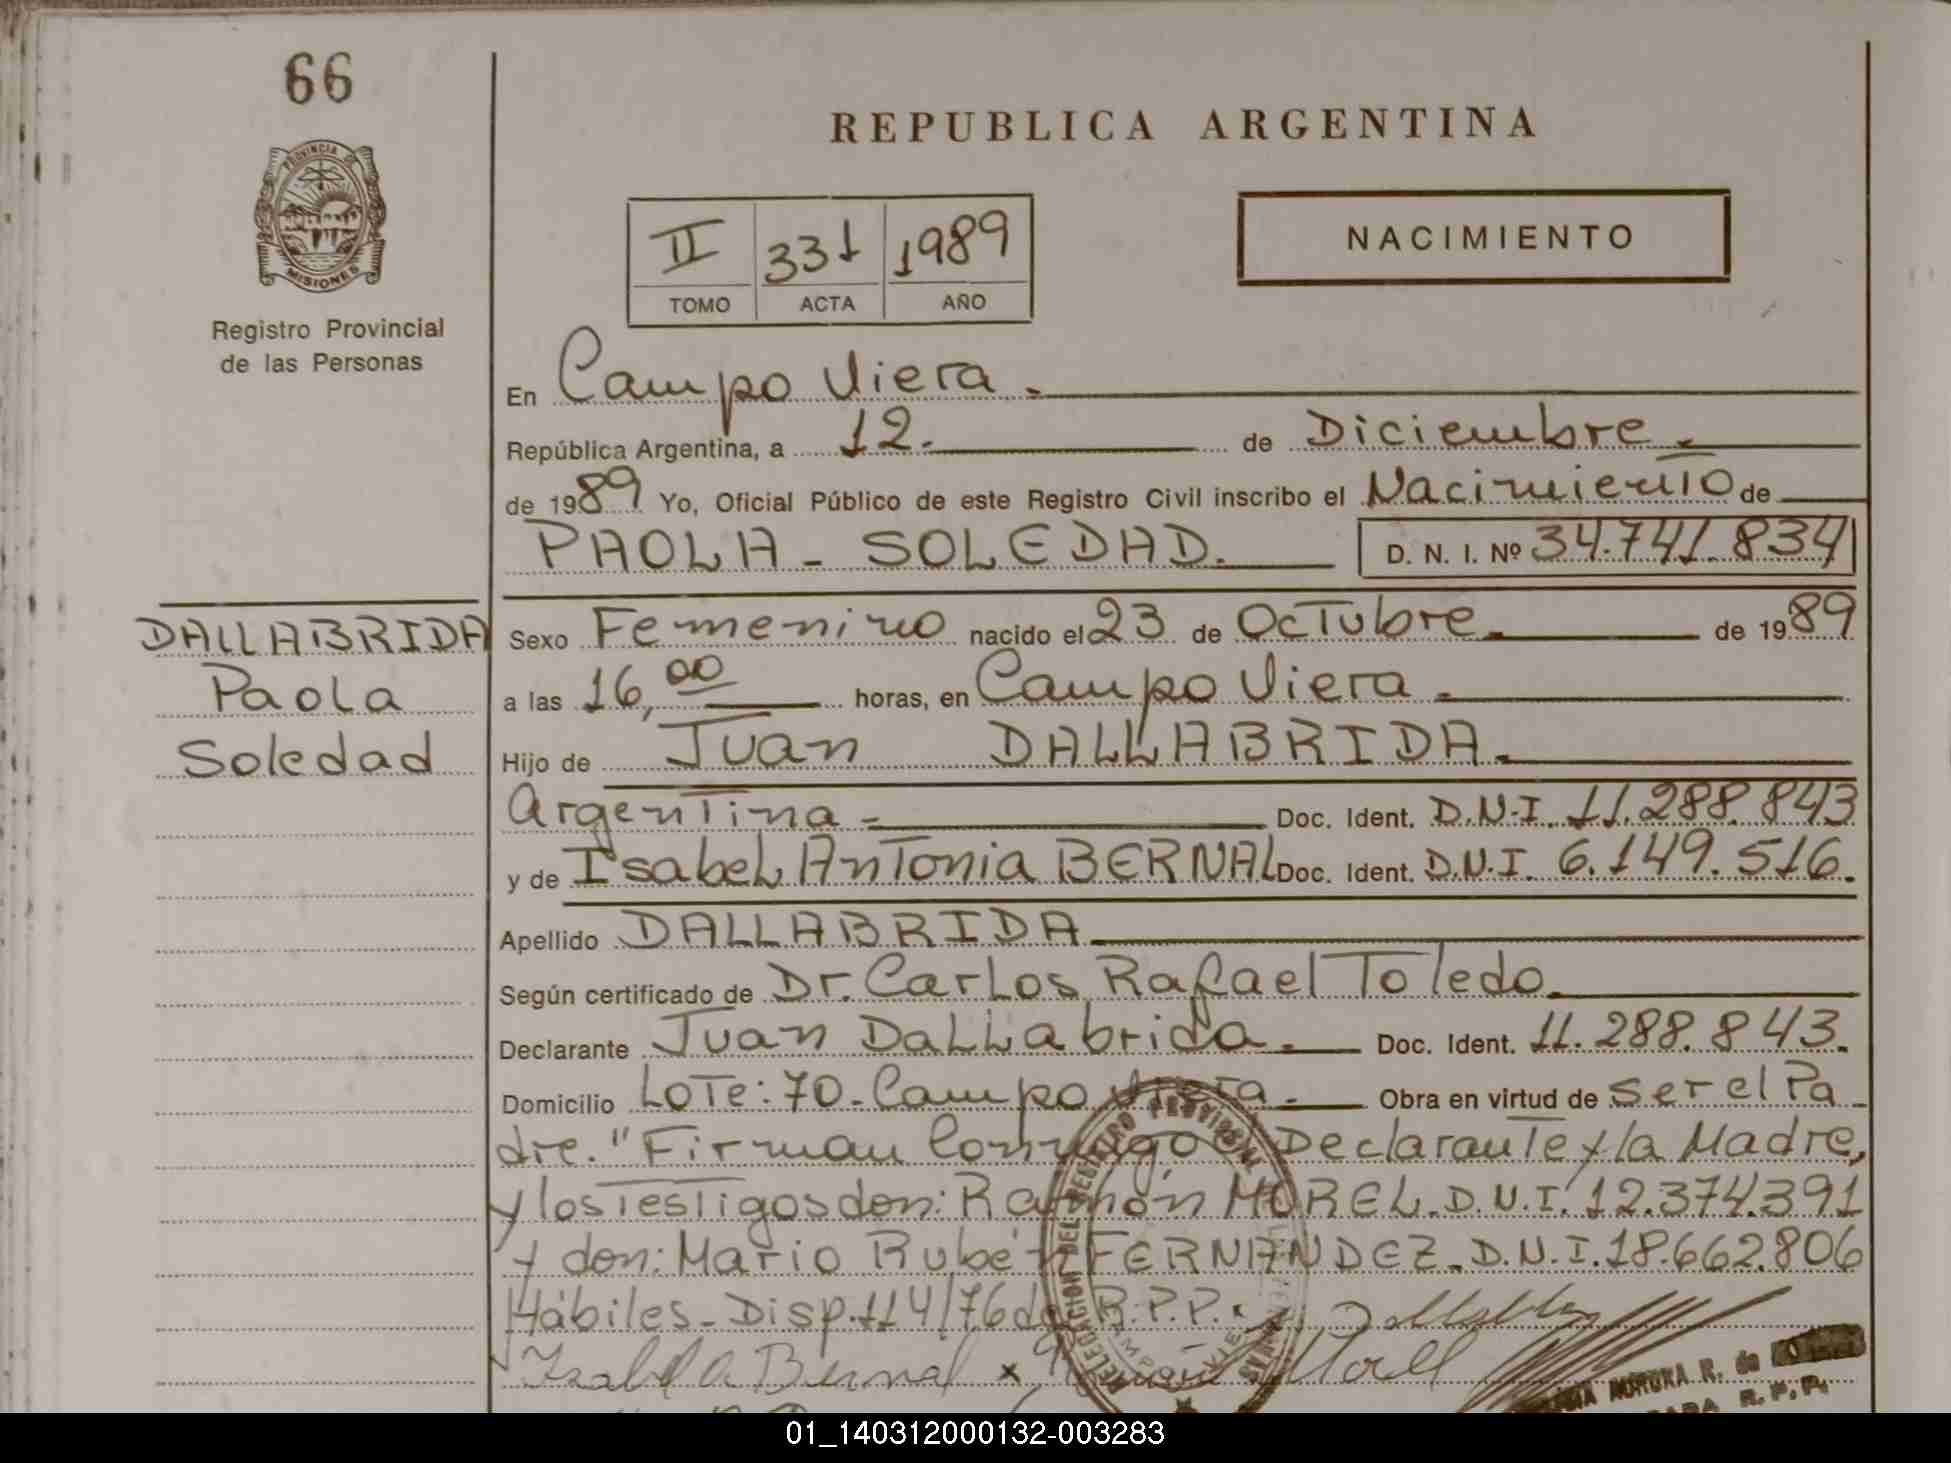 66
PROVINCIA DE
MISIONES
Registro Provincial
de las Personas
REPUBLICA ARGENTINA
II 331 1989
TOMO ACTA AÑO
NACIMIENTO
En Campo Viera.
República Argentina, a 12. de Diciembre.
de 1989 Yo, Oficial Público de este Registro Civil inscribo el Nacimiento de
PAOLA - SOLEDAD. D. N. I. Nº 34.741.834
DALLABRIDA
Paola
Soledad
Sexo Femenino nacido el 23 de Octubre. de 1989
a las 16,00 horas, en Campo Viera.
Hijo de Juan DALLABRIDA.
Argentina - Doc. Ident. D.N.I. 11.288.843
y de Isabel Antonia BERNAL Doc. Ident. D.N.I. 6.149.516.
Apellido DALLABRIDA
Según certificado de Dr. Carlos Rafael Toledo.
Declarante Juan Dallabrida. Doc. Ident. 11.288.843.
Domicilio Lote: 70 - Campo Viera. Obra en virtud de ser el Pa
dre. "Firman Conmigo el Declarante y la Madre,
y los Testigos don: Ramón MOREL. D.N.I. 12.374.391
y don: Mario Rubén FERNANDEZ. D.N.I. 18.662.806
Hábiles - Disp. 114/76 de R.P.P.
Bernal x
DELEGACION DEL REGISTRO PROVINCIAL
R. de
R. P. P.
01_140312000132-003283